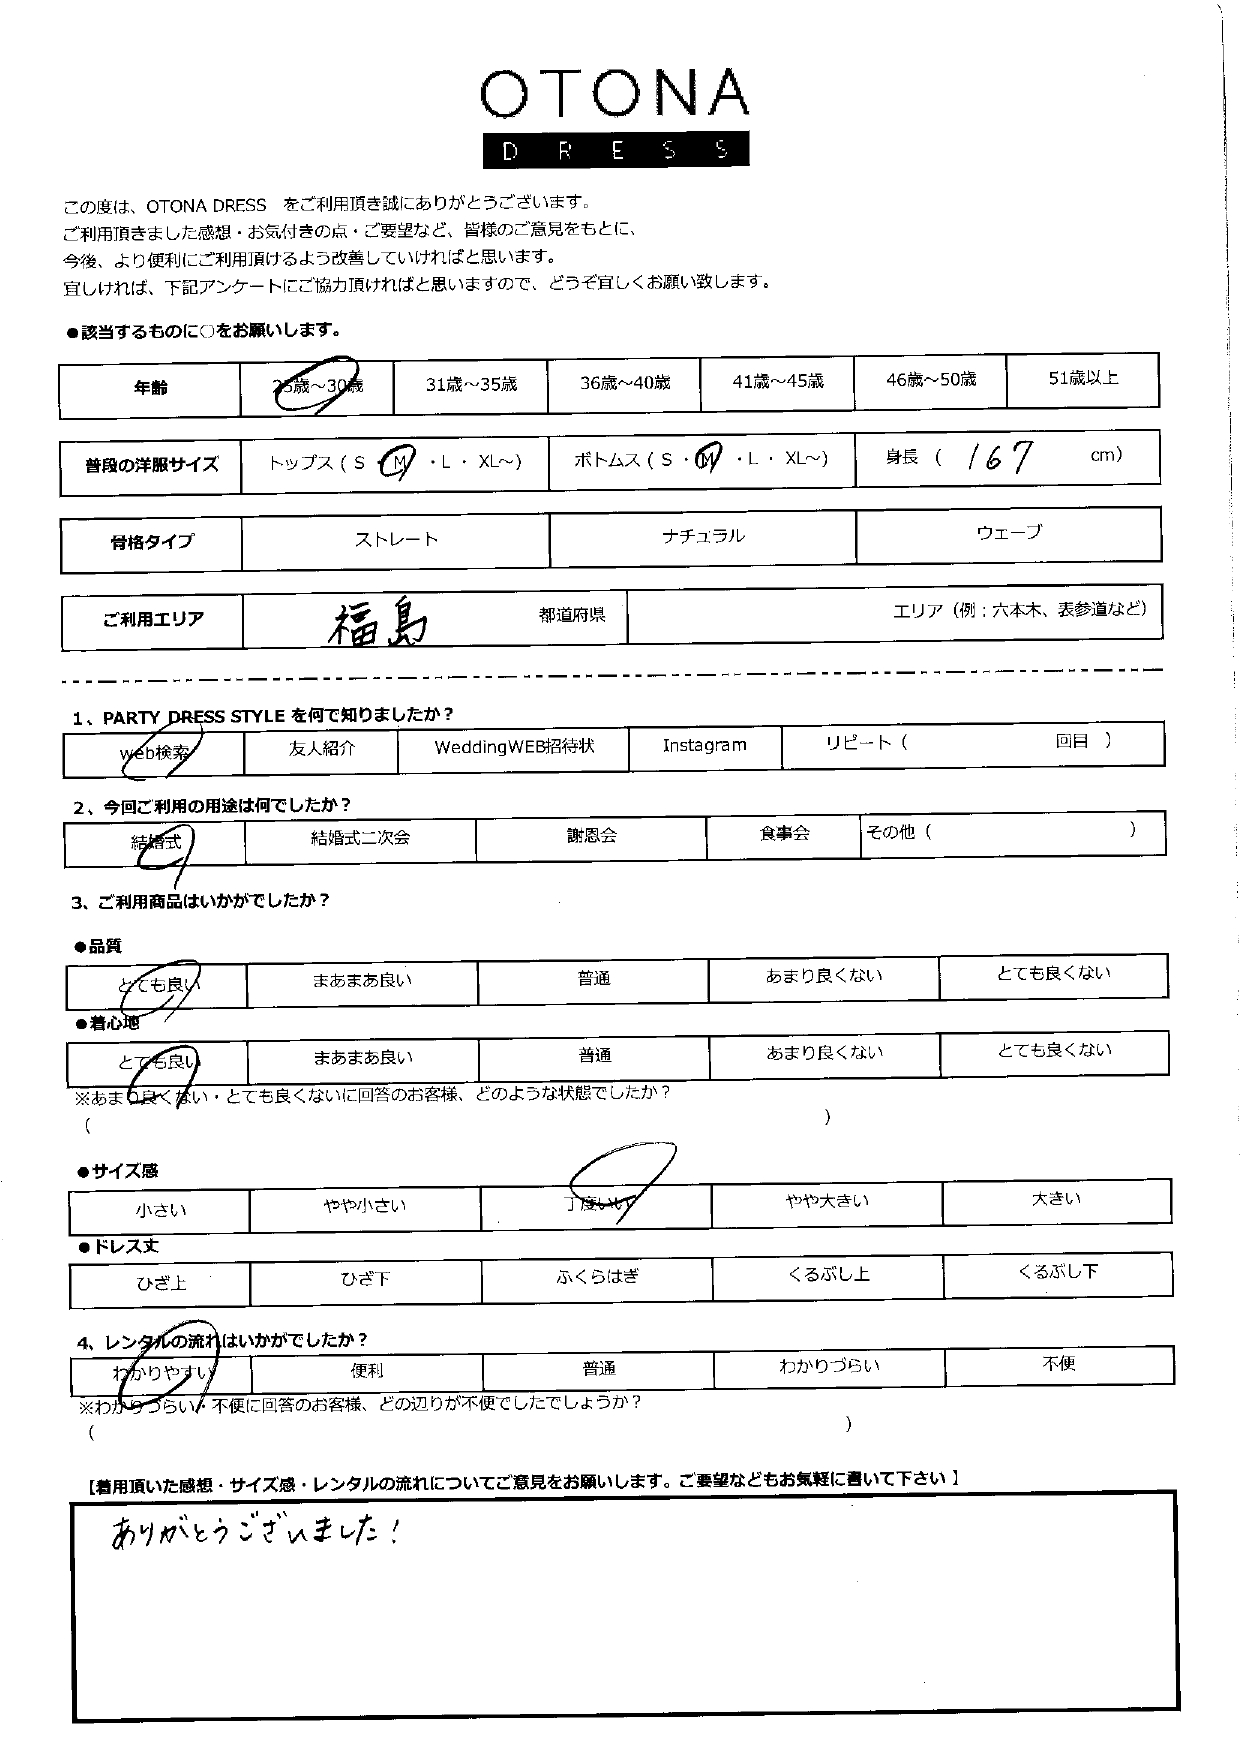 OTONA
DRESS
この度は、OTONA DRESS　をご利用頂き誠にありがとうございます。
ご利用頂きました感想・お気付きの点・ご要望など、皆様のご意見をもとに、
今後、より便利にご利用頂けるよう改善していければと思います。
宜しければ、下記アンケートにご協力頂ければと思いますので、どうぞ宜しくお願い致します。
●該当するものに○をお願いします。
年齢 25歳～30歳 31歳～35歳 36歳～40歳 41歳～45歳 46歳～50歳 51歳以上
普段の洋服サイズ トップス（ S ・ M ・ L ・ XL～） ボトムス（ S ・ M ・ L ・ XL～） 身長（ 167 cm）
骨格タイプ ストレート ナチュラル ウェーブ
ご利用エリア 福島 都道府県 エリア（例：六本木、表参道など）
1、PARTY DRESS STYLE を何で知りましたか？
web検索 友人紹介 WeddingWEB招待状 Instagram リピート（ 回目 ）
2、今回ご利用の用途は何でしたか？
結婚式 結婚式二次会 謝恩会 食事会 その他（ ）
3、ご利用商品はいかがでしたか？
●品質
とても良い まあまあ良い 普通 あまり良くない とても良くない
●着心地
とても良い まあまあ良い 普通 あまり良くない とても良くない
※あまり良くない・とても良くないに回答のお客様、どのような状態でしたか？
（ ）
●サイズ感
小さい やや小さい 丁度いい やや大きい 大きい
●ドレス丈
ひざ上 ひざ下 ふくらはぎ くるぶし上 くるぶし下
4、レンタルの流れはいかがでしたか？
わかりやすい 便利 普通 わかりづらい 不便
※わかりづらい・不便に回答のお客様、どの辺りが不便でしたでしょうか？
（ ）
【着用頂いた感想・サイズ感・レンタルの流れについてご意見をお願いします。ご要望などもお気軽に書いて下さい 】
ありがとうございました！